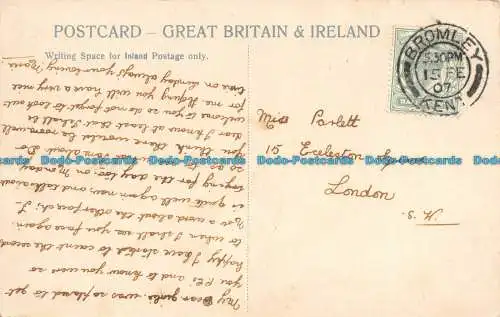 POSTCARD – GREAT BRITAIN & IRELAND
Writing Space for Inland Postage only.
BROMLEY
5.30PM
15 FE
07
KENT
Miss Parlett
15 Eccleston
London
S.W.
My Dear girlie. was so pleased to get
you P.C. and to know you were so
happy I have started to count the seconds
to when I shall see you once again.
Not a word about the other forench I
is quite well again now, and talks about
trying for the day too, on Monday
so as to
you think there would be room well
dear I know at least that I shall be
welcome to you so do not forget to look out
for me. Hoping you will have a very nice
time on Sunday always your loving
Dodo-Postcards
Dodo-Postcards
Dodo-Postcards
Dodo-Postcards
Dodo-Postcards